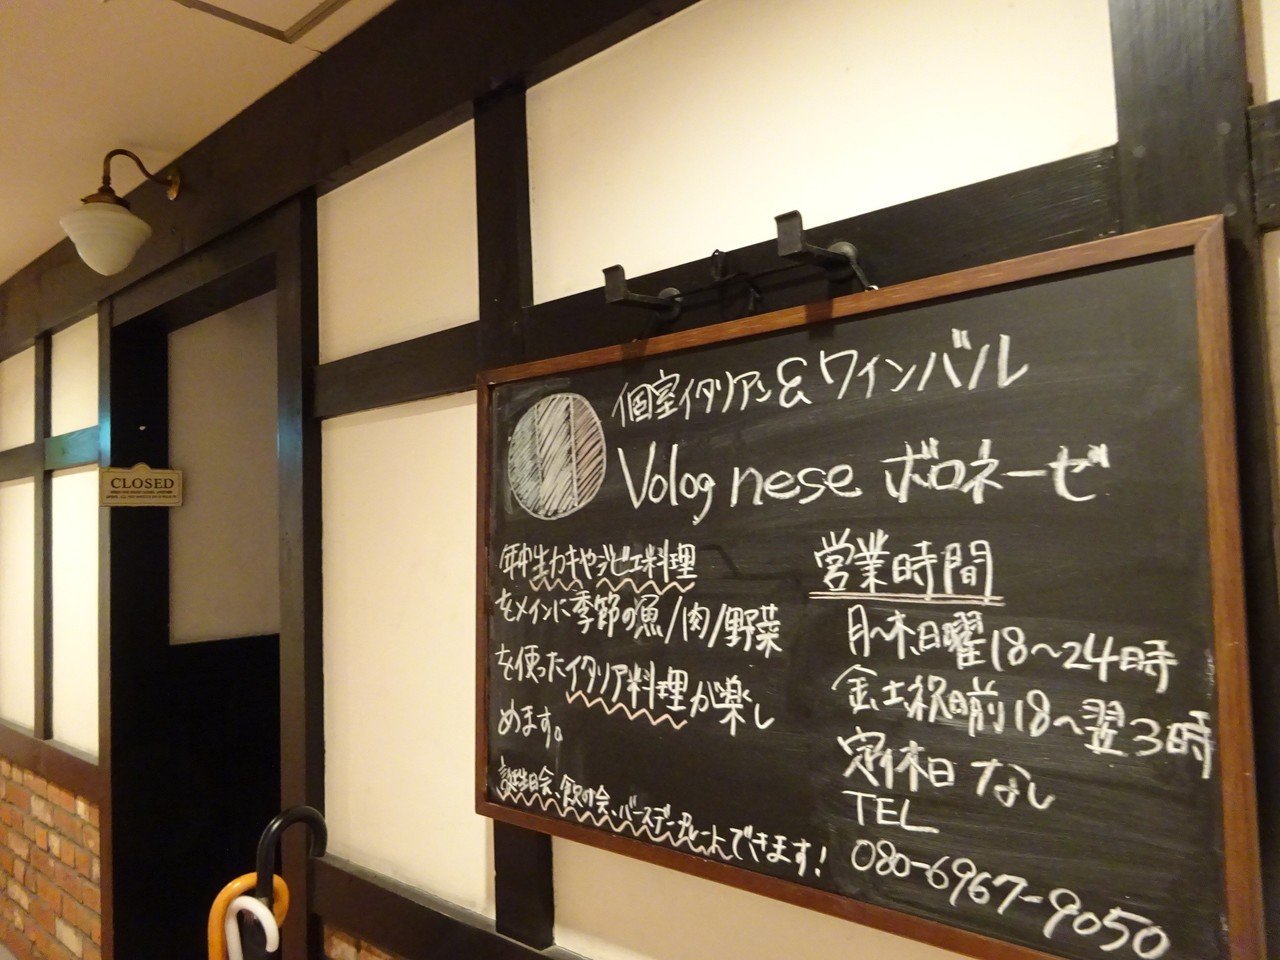 CLOSED
個室イタリアン&ワインバル
Volog nese ボロネーゼ
年中生カキやジビエ料理
をメインに季節の魚/肉/野菜
を使ったイタリア料理が楽し
めます。
誕生日会、飲み会、バースデープレートできます!
営業時間
月~木日曜18~24時
金土祝日前18~翌3時
定休日 なし
TEL
080-6967-9050